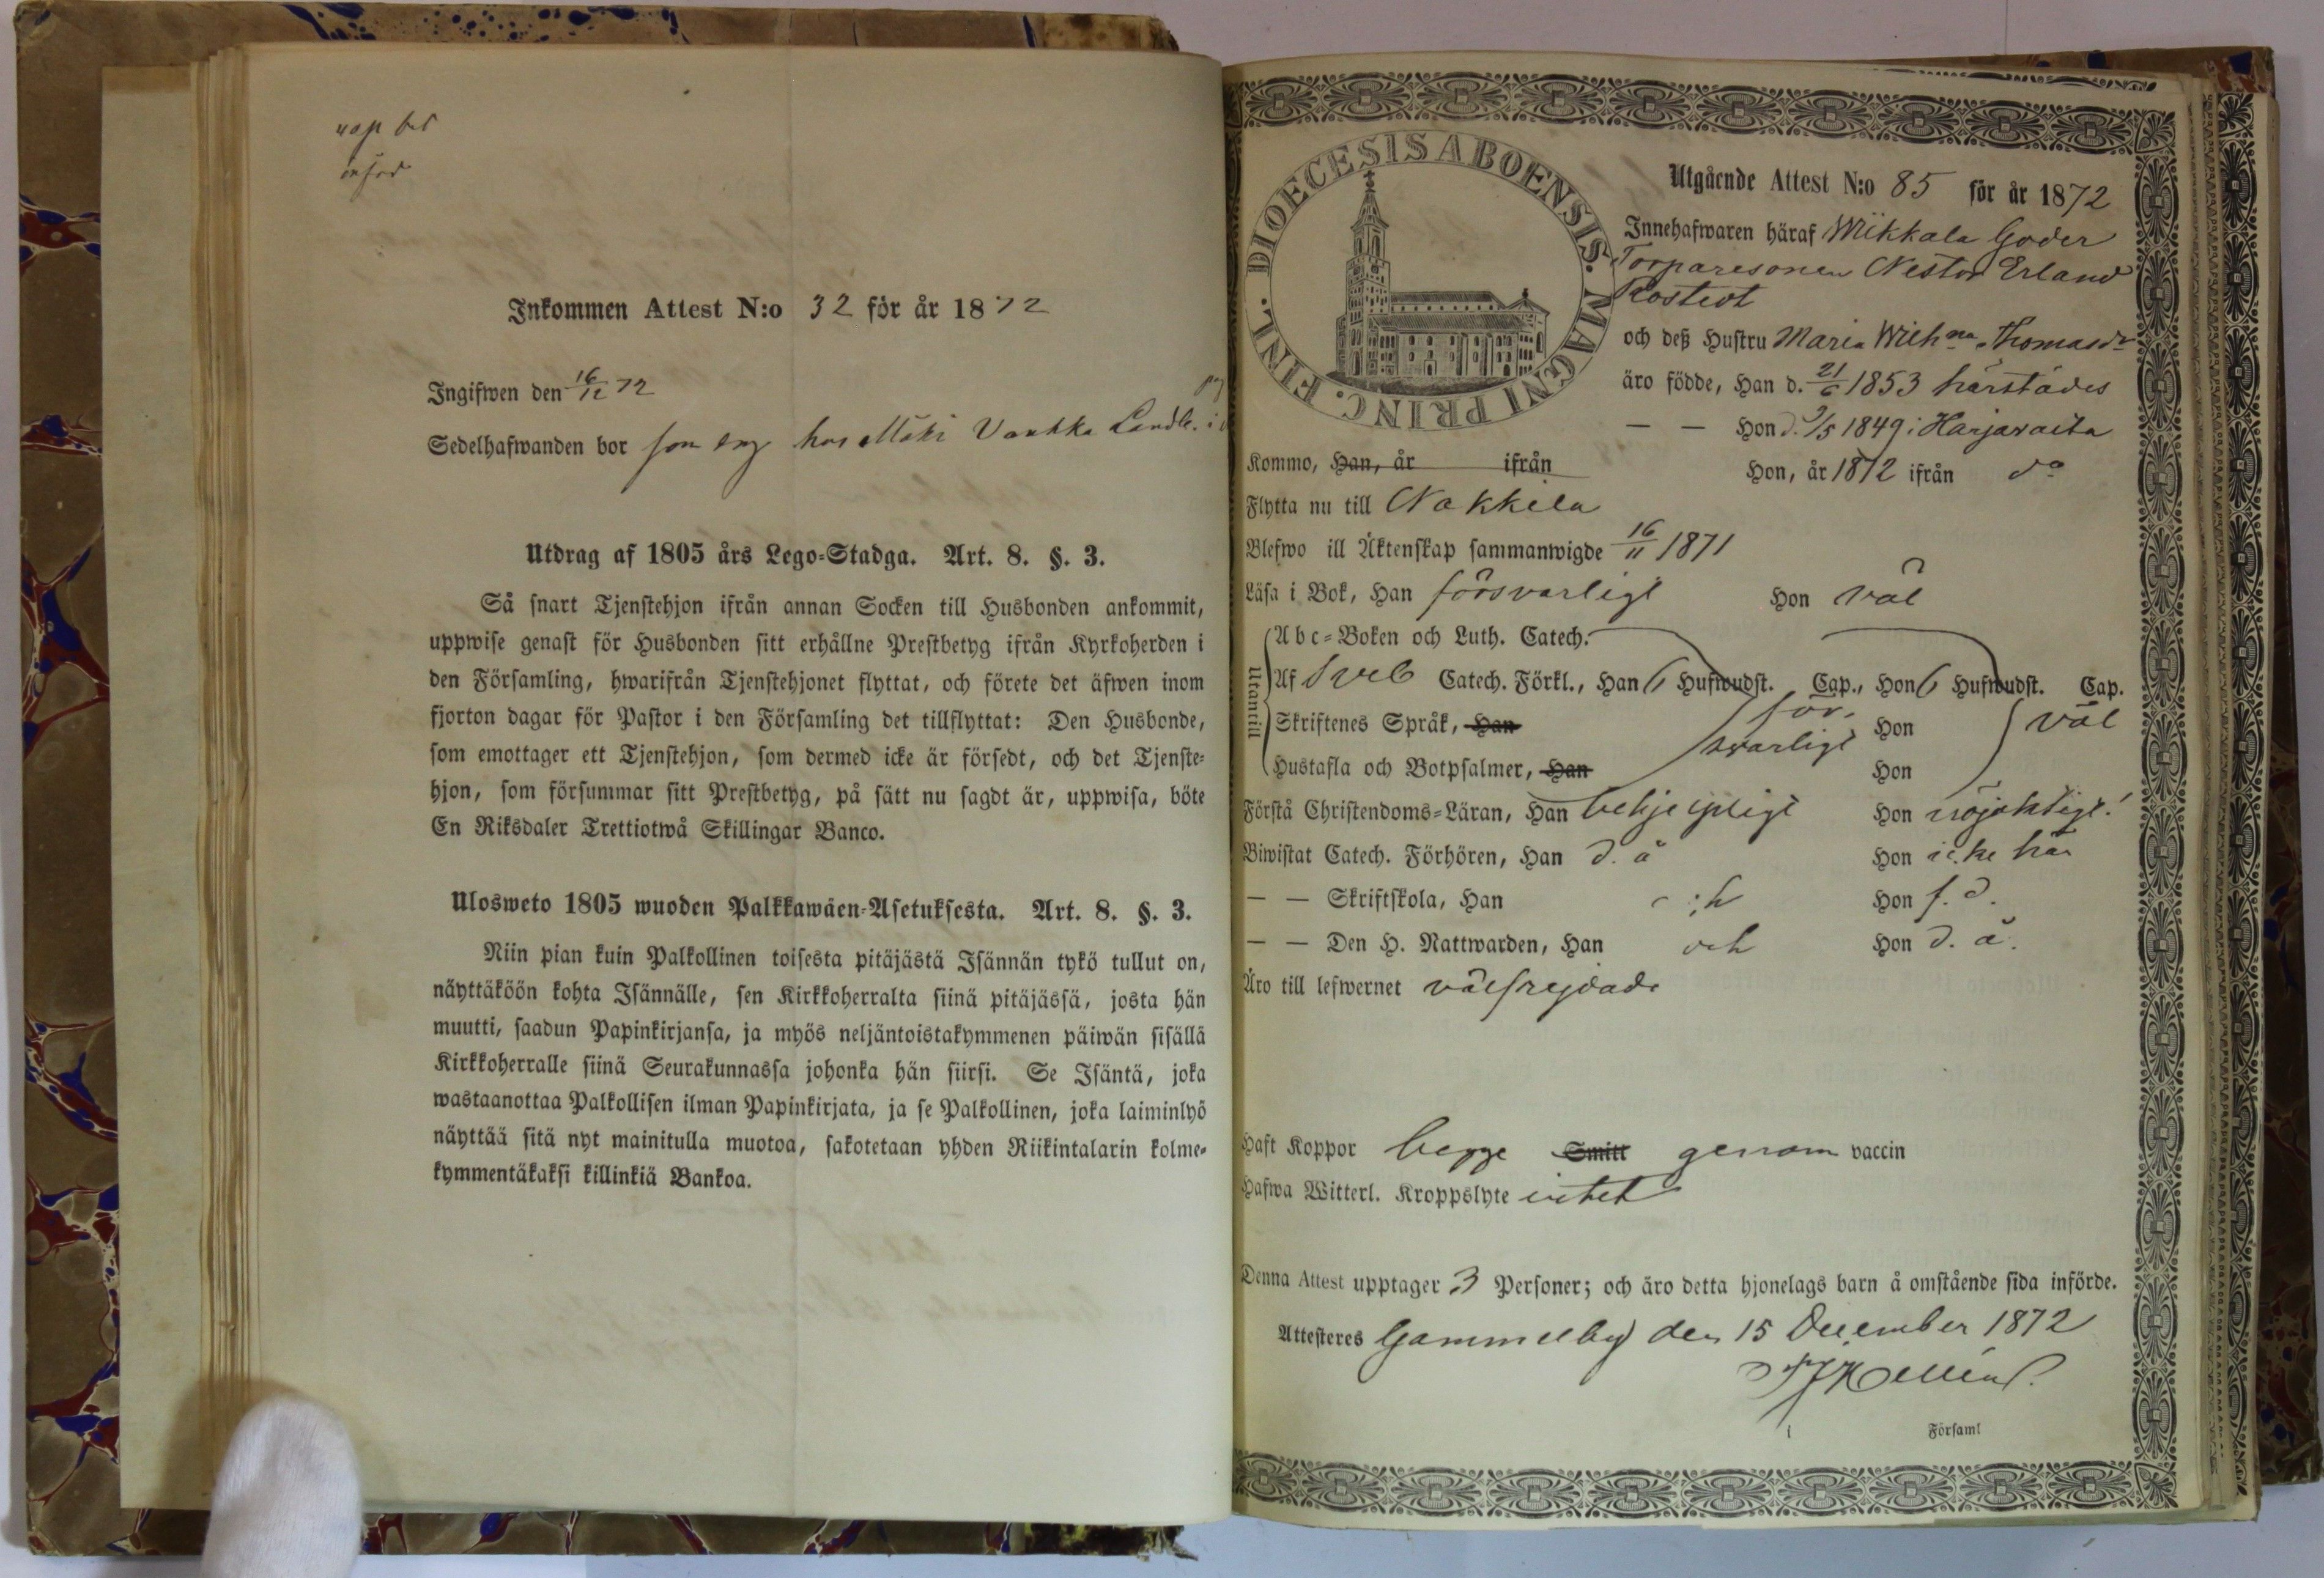 Inkommen Attest N:o 32 för år 1872
Ingifwen den 16/12 72
Sedelhafwanden bor som hos Mäki
Utdrag af 1805 års Lego-Stadga. Art. 8. §. 3.
Så snart Tjenstehjon ifrån annan Socken till Husbonden ankommit,
uppwise genast för Husbonden sitt erhållne Prestbetyg ifrån Kyrkoherden i
den Församling, hwarifrån Tjenstehjonet flyttat, och förete det äfwen inom
fjorton dagar för Pastor i den Församling det tillflyttat: Den Husbonde,
som emottager ett Tjenstehjon, som dermed icke är försedt, och det Tjenste-
hjon, som försummar sitt Prestbetyg, på sätt nu sagdt är, uppwisa, böte
En Riksdaler Trettiotwå Skillingar Banco.
Ulosweto 1805 wuoden Palkkawäen-Asetuksesta. Art. 8. §. 3.
Niin pian kuin Palkollinen toisesta pitäjästä Isännän tykö tullut on,
näyttäköön kohta Isännälle, sen Kirkkoherralta siinä pitäjässä, josta hän
muutti, saadun Papinkirjansa, ja myös neljäntoistakymmenen päiwän sisällä
Kirkkoherralle siinä Seurakunnassa johonka hän siirsi. Se Isäntä, joka
wastaanottaa Palkollisen ilman Papinkirjata, ja se Palkollinen, joka laiminlyö
näyttää sitä nyt mainitulla muotoa, sakotetaan yhden Riikintalarin kolme-
kymmentäkaksi killinkiä Bankoa.
DIOECESIS ABOENSIS. MAGNI PRINC. FINL.
Utgående Attest N:o 85 för år 1872
Innehafwaren häraf Wikkala Goder
Torparesonen Nestor Erland
Rostedt
och deß Hustru Maria Wilhna Thomasdr
äro födde, Han d. 21/6 1853 härstädes
— — Hon d. 9/5 1849 i Harjavalta
Kommo, Han, år ifrån Hon, år 1872 ifrån do
Flytta nu till Nakkila
Blefwo ill Äktenskap sammanwigde 16/11 1871
Läsa i Bok, Han försvarligt Hon väl
Utantill
Abc-Boken och Luth. Catech.
Af Sveb Catech. Förkl., Han 6 Hufwudst. Cap., Hon 6 Hufwudst. Cap.
Skriftenes Språk, Han för- Hon väl
Hustafla och Botpsalmer, Han svarligt Hon
Förstå Christendoms-Läran, Han behjelpligt Hon nöjaktigt
Biwistat Catech. Förhören, Han d. å Hon icke här
— — Skriftskola, Han Hon f. d.
— — Den H. Nattwarden, Han och Hon d. å.
Äro till lefwernet välfrejdade
Haft Koppor begge Smitt genom vaccin
Hafwa Witterl. Kroppslyte intet
Denna Attest upptager 3 Personer; och äro detta hjonelags barn å omstående sida införde.
Attesteres Gammelby den 15 December 1872
i Församl